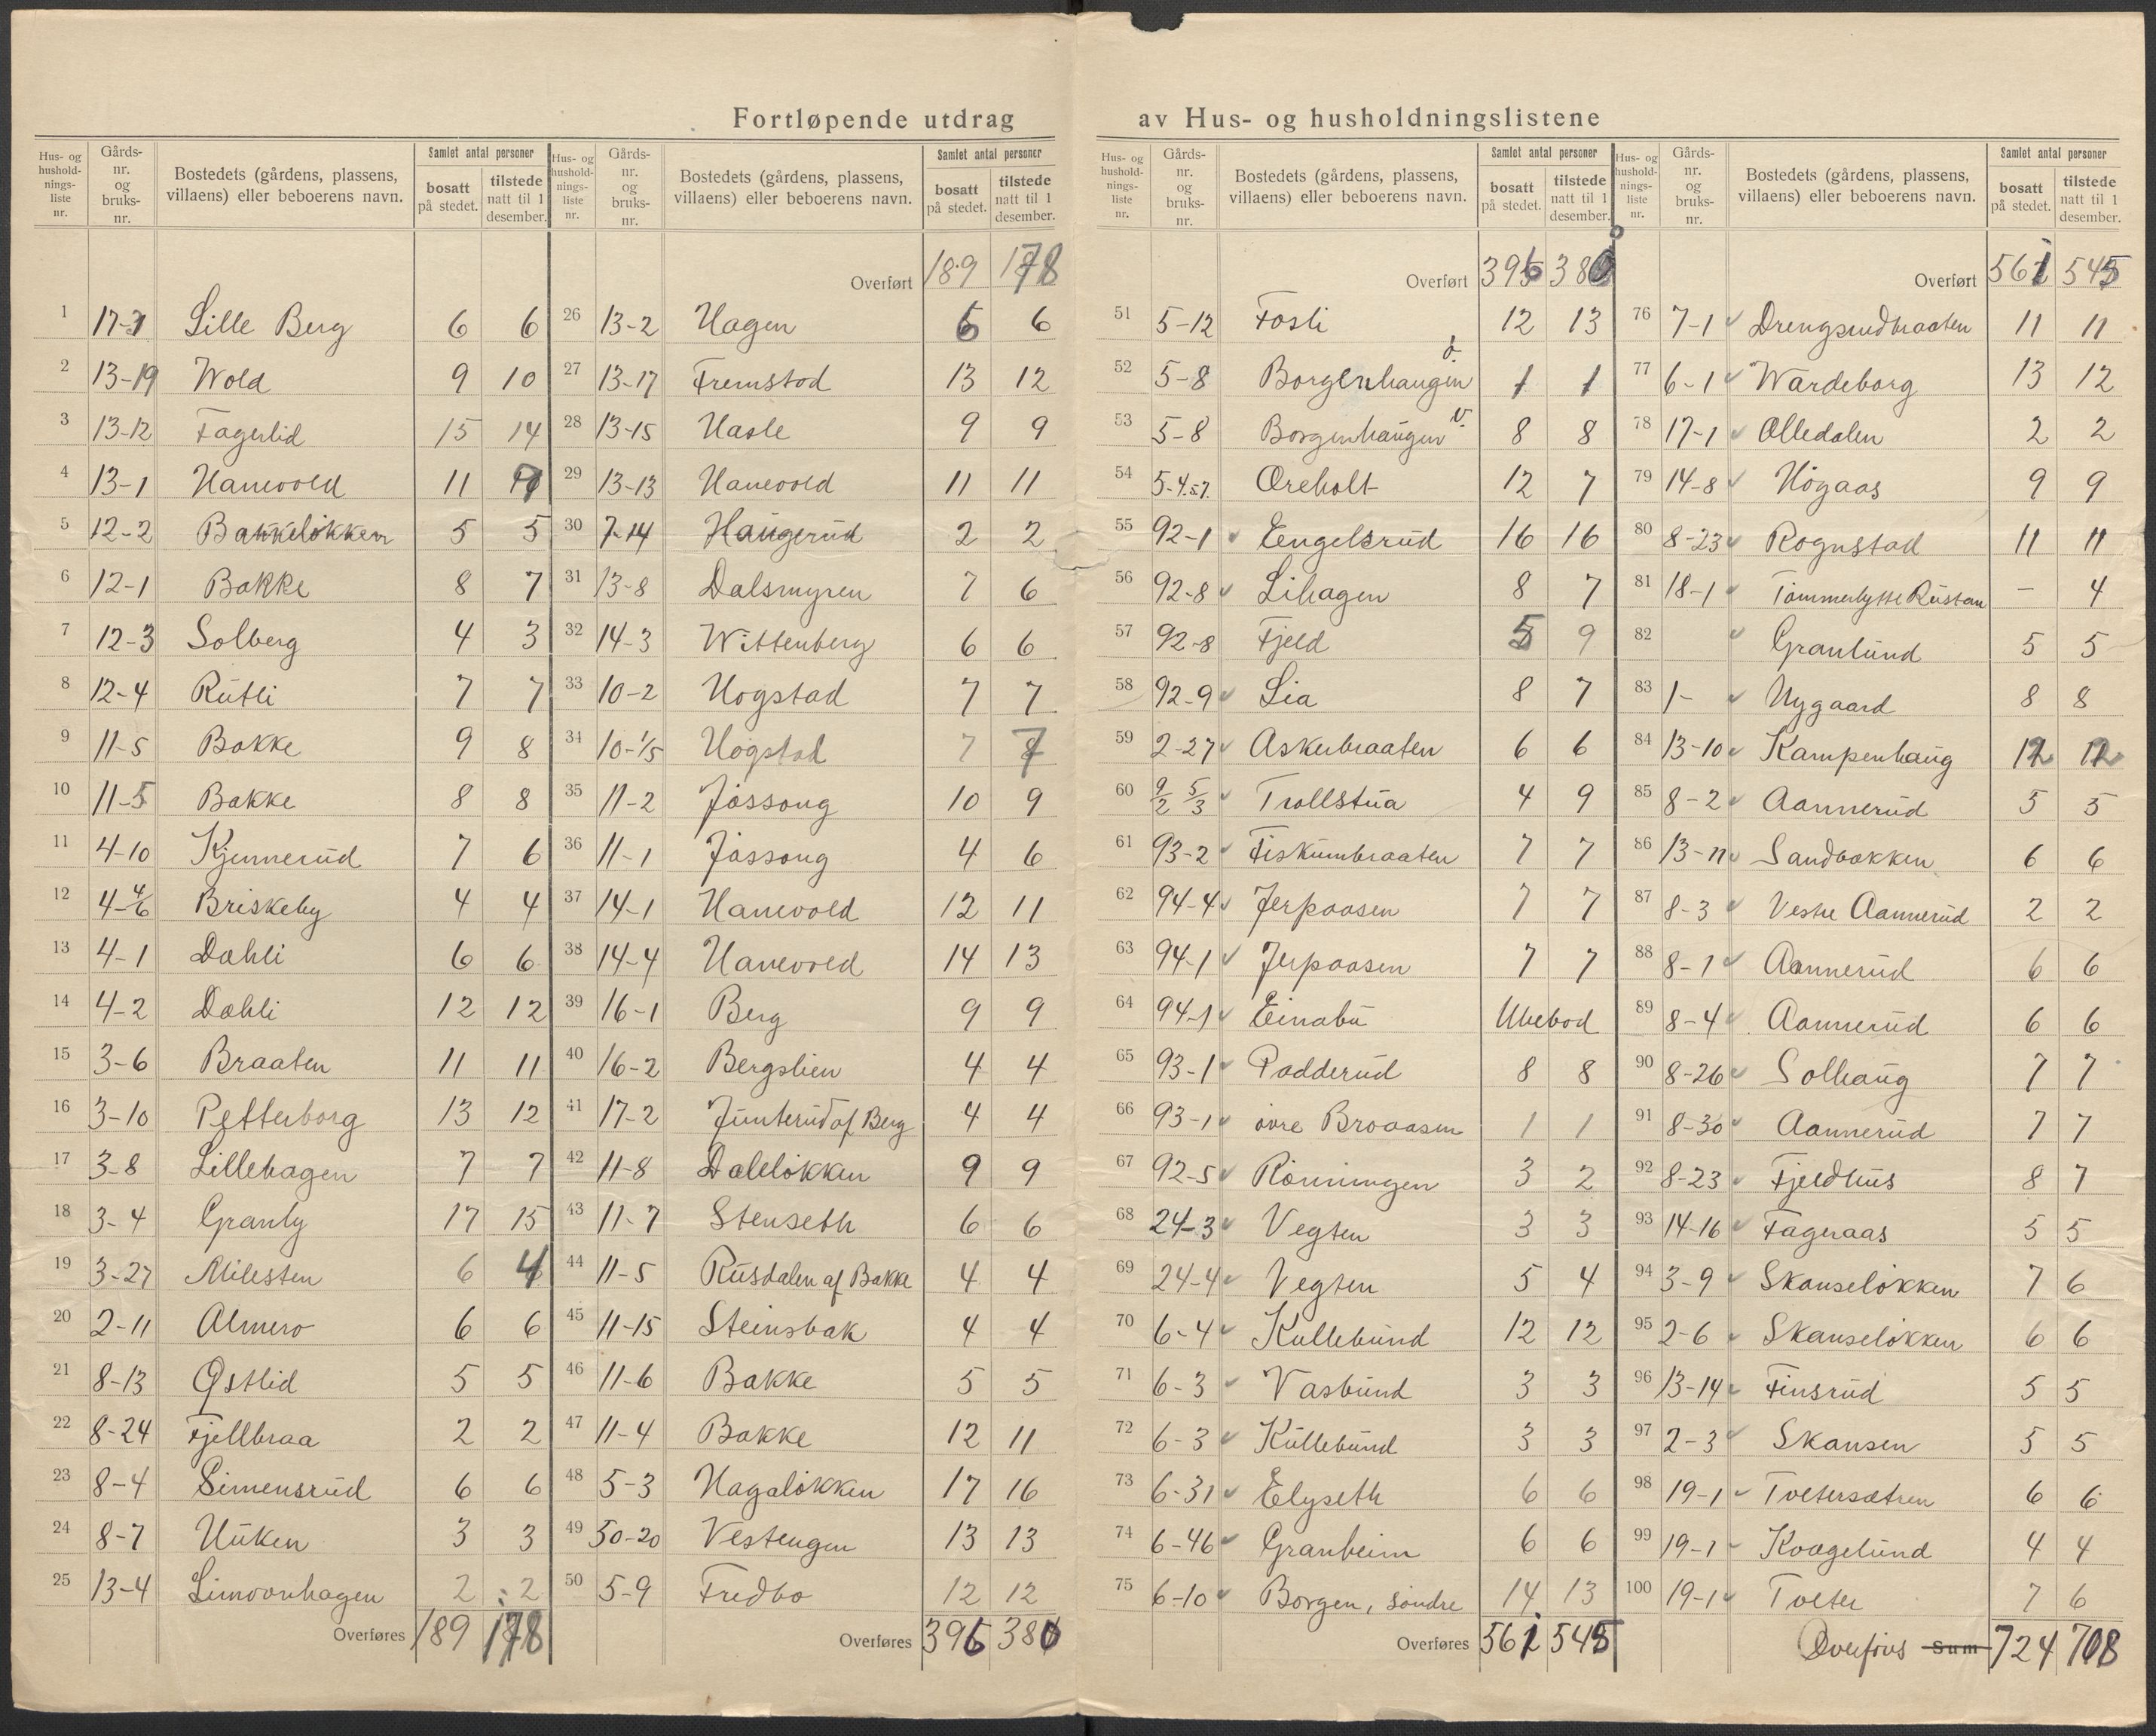 Fortløpende utdrag av Hus- og husholdningslistene
Hus- og husholdningsliste nr. | Gårds-nr. og bruks-nr. | Bostedets (gårdens, plassens, villaens) eller beboerens navn. | Samlet antal personer | bosatt på stedet. | tilstede natt til 1 desember.
1 17-1 Lille Berg 6 6
2 13-19 Wold 9 10
3 13-12 Fagerlid 15 14
4 13-1 Hanevold 11
5 12-2 Bakkeløkken 5 5
6 12-1 Bakke 8 7
7 12-3 Solberg 4 3
8 12-4 Rütli 7 7
9 11-5 Bakke 9 8
10 11-5 Bakke 8 8
11 4-10 Kjennerüd 7 6
12 4-4/6 Briskeby 4 4
13 4-1 Dahli 6 6
14 4-2 Dahli 12 12
15 3-6 Braaten 11 11
16 3-10 Petterborg 13 12
17 3-8 Lillehagen 7 7
18 3-4 Granly 17 15
19 3-27 Milesten 6 4
20 2-11 Almero 6 6
21 8-13 Østlid 5 5
22 8-24 Fjellbraa 2 2
23 8-4 Simensrüd 6 6
24 8-7 Huken 3 3
25 13-4 Limoonhagen 2 2
Overføres 189 178
Hus- og husholdningsliste nr. | Gårds-nr. og bruks-nr. | Bostedets (gårdens, plassens, villaens) eller beboerens navn. | Samlet antal personer | bosatt på stedet. | tilstede natt til 1 desember.
Overført 189 178
26 13-2 Hagen 6 6
27 13-17 Fremstad 13 12
28 13-15 Hasle 9 9
29 13-13 Hanevold 11 11
30 7-14 Haugerüd 2 2
31 13-8 Dalsmyren 7 6
32 14-3 Wittenberg 6 6
33 10-2 Hogstad 7 7
34 10-1/5 Høgstad 7 7
35 11-2 Jøssong 10 9
36 11-1 Jøssong 4 6
37 14-1 Hanevold 12 11
38 14-4 Hanevold 14 13
39 16-1 Berg 9 9
40 16-2 Bergslien 4 4
41 17-2 Junterüd af Berg 4 4
42 11-8 Daleløkken 9 9
43 11-7 Stenseth 6 6
44 11-5 Rüsdalen af Bakke 4 4
45 11-15 Steinsbak 4 4
46 11-6 Bakke 5 5
47 11-4 Bakke 12 11
48 5-3 Hagaløkken 17 16
49 50-20 Vestengen 13 13
50 5-9 Fredbo 12 12
Overføres 396 380
Hus- og husholdningsliste nr. | Gårds-nr. og bruks-nr. | Bostedets (gårdens, plassens, villaens) eller beboerens navn. | Samlet antal personer | bosatt på stedet. | tilstede natt til 1 desember.
Overført 396 380
51 5-12 Fosli 12 13
52 5-8 Borgenhaugen ö. 1 1
53 5-8 Borgenhaugen v. 8 8
54 5-4.57. Oreholt 12 7
55 92-1 Eengelsrüd 16 16
56 92-8 Lihagen 8 7
57 92-8 Fjeld 5 9
58 92-9 Lia 8 7
59 2-27 Askerbraaten 6 6
60 9/2 5/3 Trollstüa 4 9
61 93-2 Fiskümbraaten 7 7
62 94-4 Jerpaasen 7 7
63 94-1 Jerpaasen 7 7
64 94-1 Einabü Ubebod
65 93-1 Padderüd 8 8
66 93-1 övre Braaasen 1 1
67 92-5 Rönningen 3 2
68 24-3 Vegten 3 3
69 24-4 Vegten 5 4
70 6-4 Küllebünd 12 12
71 6-3 Vasbünd 3 3
72 6-3 Küllebünd 3 3
73 6-31 Elyseth 6 6
74 6-46 Granheim 6 6
75 6-10 Borgen, søndre 14 13
Overføres 561 545
Hus- og husholdningsliste nr. | Gårds-nr. og bruks-nr. | Bostedets (gårdens, plassens, villaens) eller beboerens navn. | Samlet antal personer | bosatt på stedet. | tilstede natt til 1 desember.
Overført 561 545
76 7-1 Drengsrudbraaten 11 11
77 6-1 Wardeborg 13 12
78 17-1 Olledalen 2 2
79 14-8 Högaas 9 9
80 8-23 Rognstad 11 11
81 18-1 Tömmerhytte Rüstan - 4
82 Granlünd 5 5
83 1- Nygaard 8 8
84 13-10 Kampenhaüg 12 12
85 8-2 Aannerüd 5 5
86 13-11 Sandbakken 6 6
87 8-3 Vestre Aannerüd 2 2
88 8-1 Aannerüd 6 6
89 8-4 Aannerüd 6 6
90 8-26 Solhaüg 7 7
91 8-30 Aannerüd 7 7
92 8-23 Fjeldhüs 8 7
93 14-16 Fageraas 5 5
94 3-9 Skanseløkken 7 6
95 2-6 Skanseløkken 6 6
96 13-14 Finsrüd 5 5
97 2-3 Skansen 5 5
98 19-1 Tvetersætren 6 6
99 19-1 Kvagelünd 4 4
100 19-1 Tveter 7 6
Overføres Sum 724 708